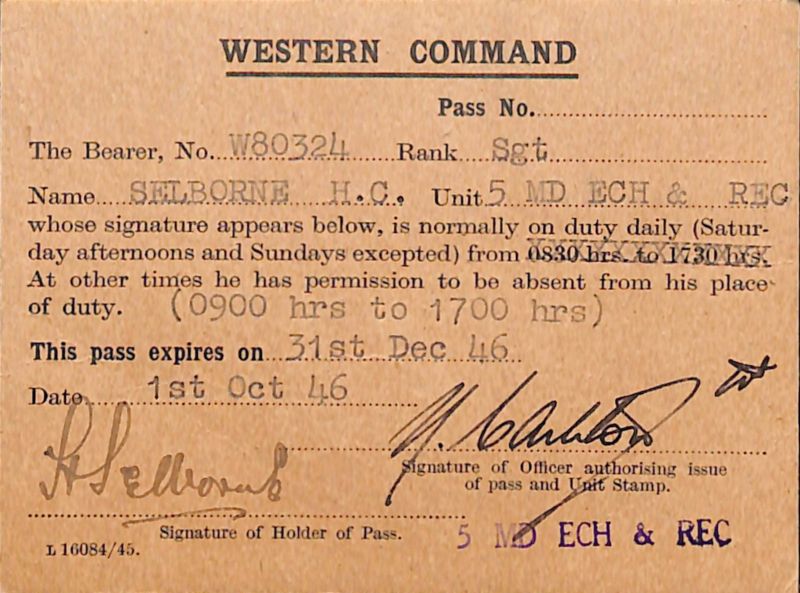 WESTERN COMMAND
Pass No.
The Bearer, No. W80324 Rank Sgt
Name SELBORNE H.C. Unit 5 MD ECH & REC
whose signature appears below, is normally on duty daily (Satur-
day afternoons and Sundays excepted) from 0830 hrs. to 1730 hrs.
At other times he has permission to be absent from his place
of duty. (0900 hrs to 1700 hrs)
This pass expires on 31st Dec 46
Date 1st Oct 46
H Selborne
Signature of Officer authorising issue
of pass and Unit Stamp.
Signature of Holder of Pass.
5 MD ECH & REC
L 16084/45.